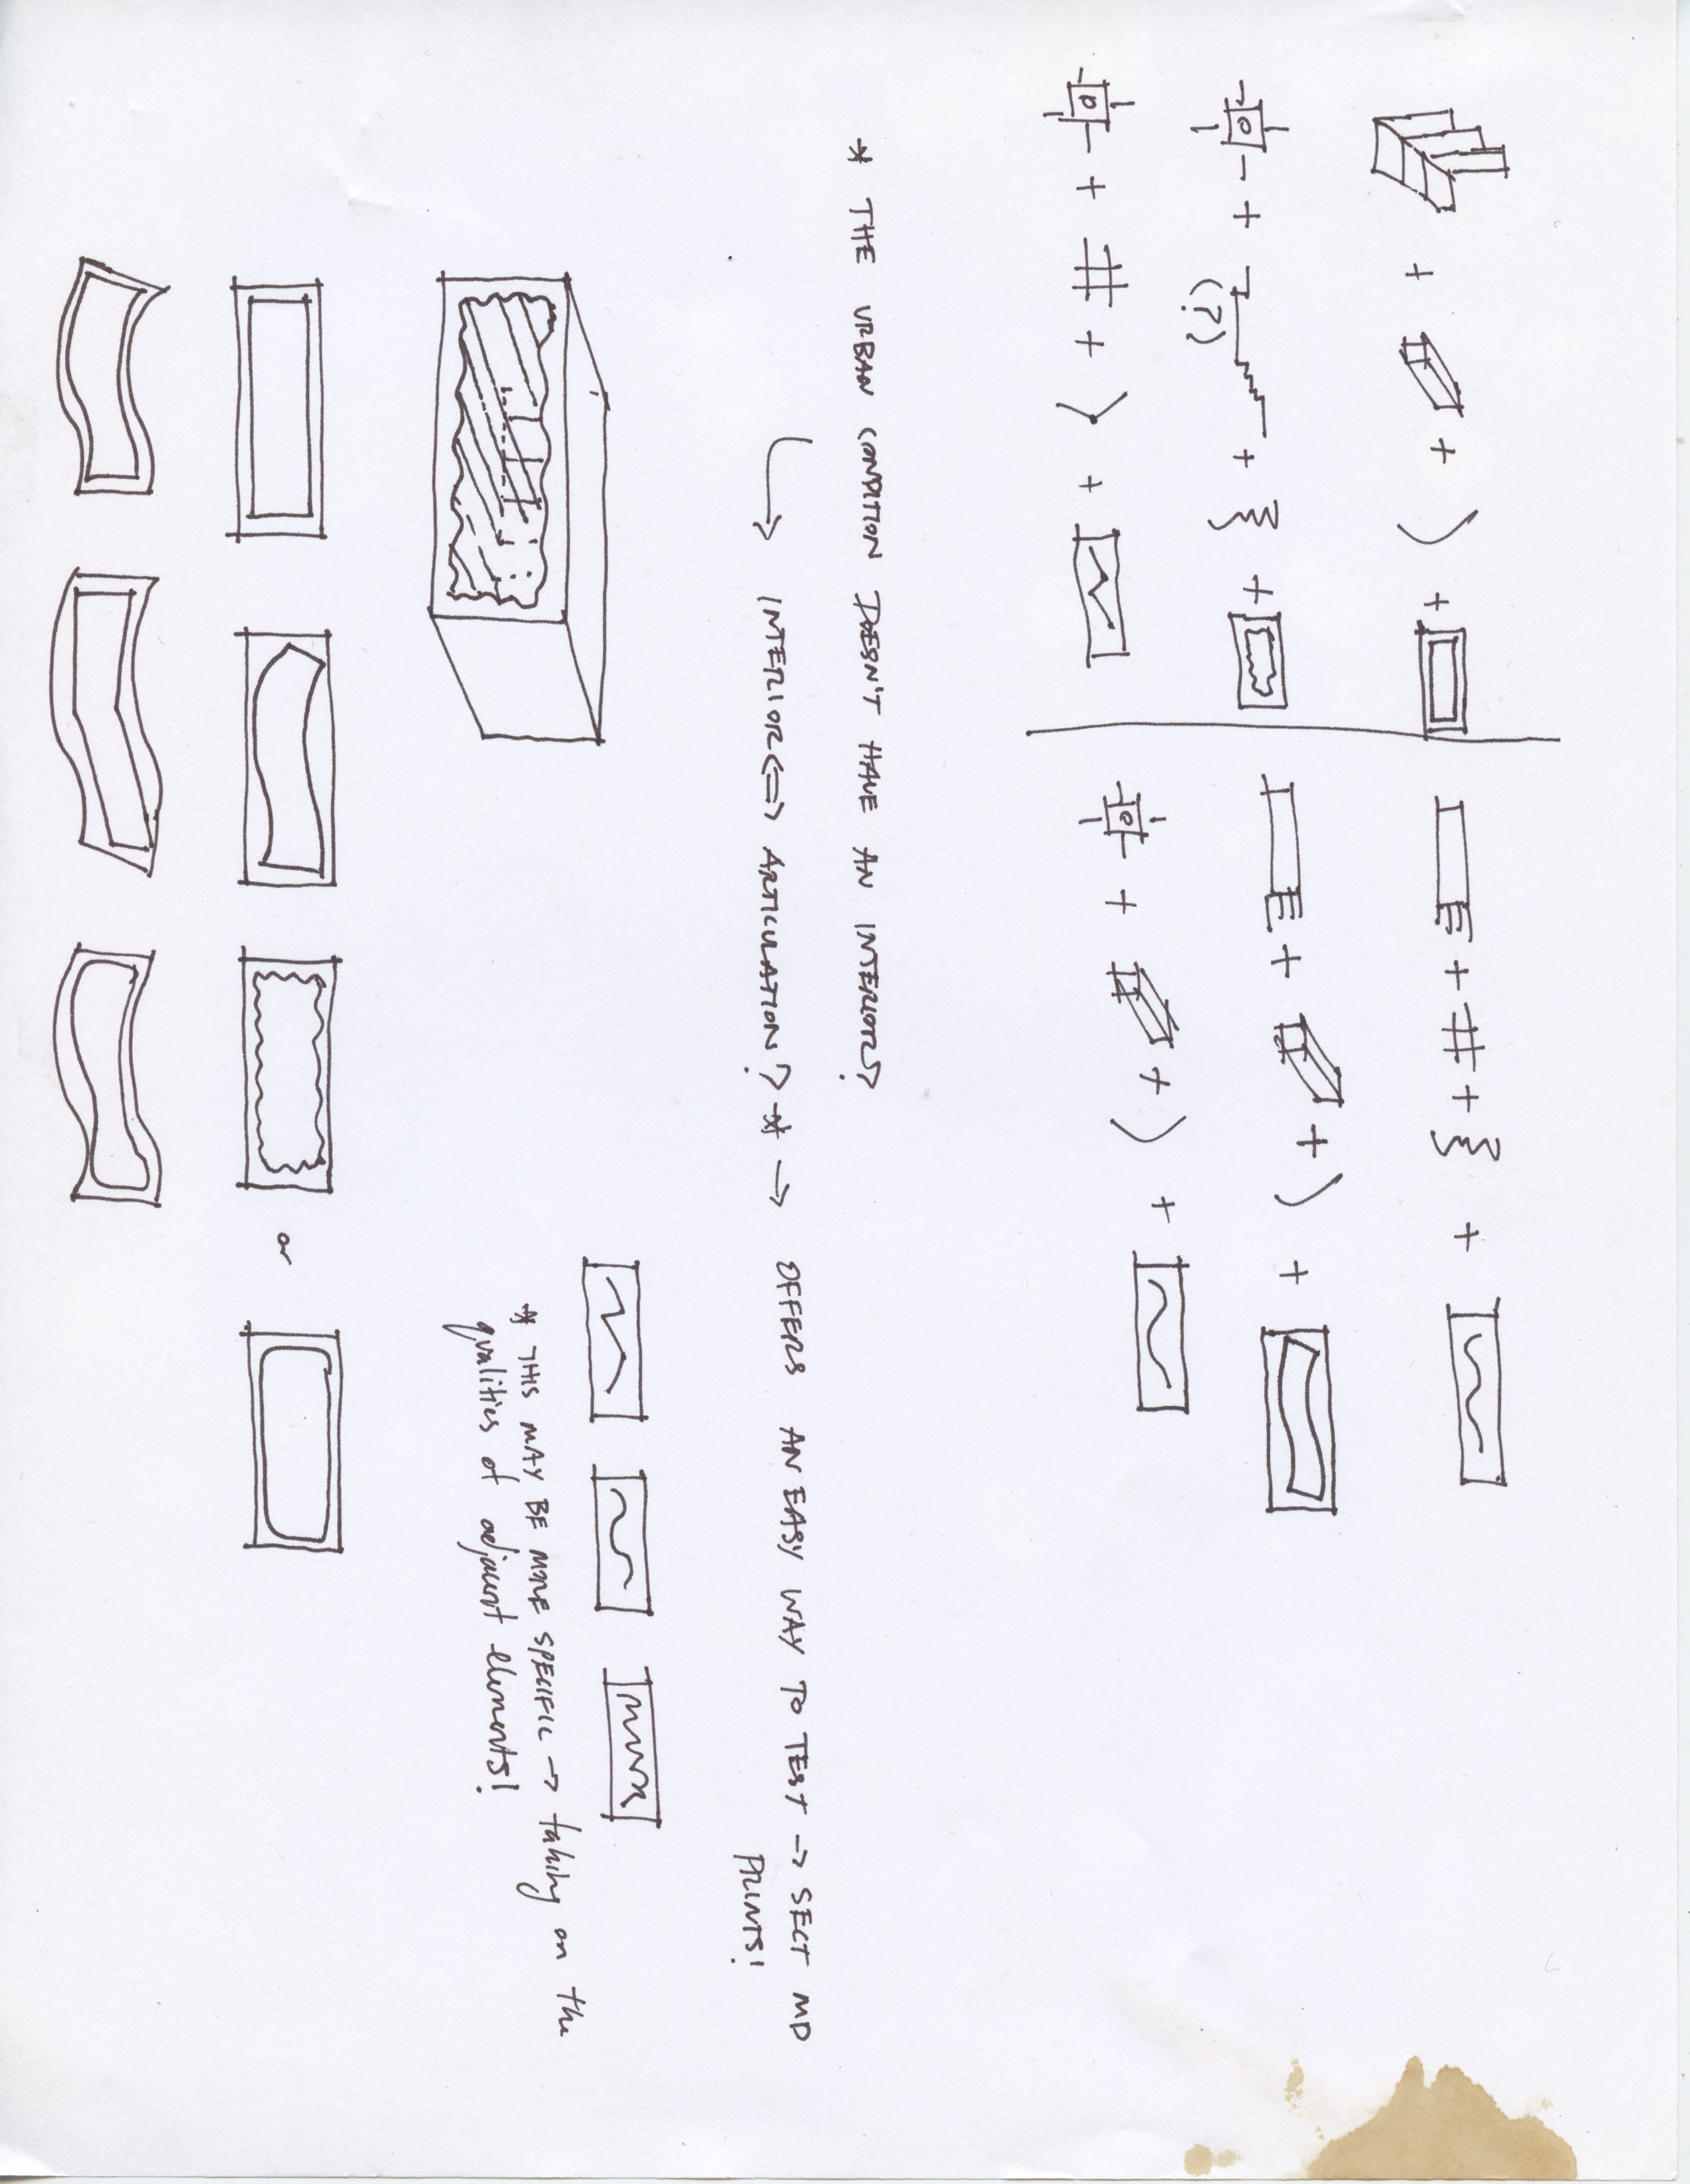 (?)
* THE URBAN CONDITION DOESN'T HAVE AN INTERIOR?
→ INTERIOR <=> ARTICULATION? * → OFFERS AN EASY WAY TO TEST → SECT MD
PRINTS!
* THIS MAY BE MORE SPECIFIC → taking on the
qualities of adjacent elements!
or